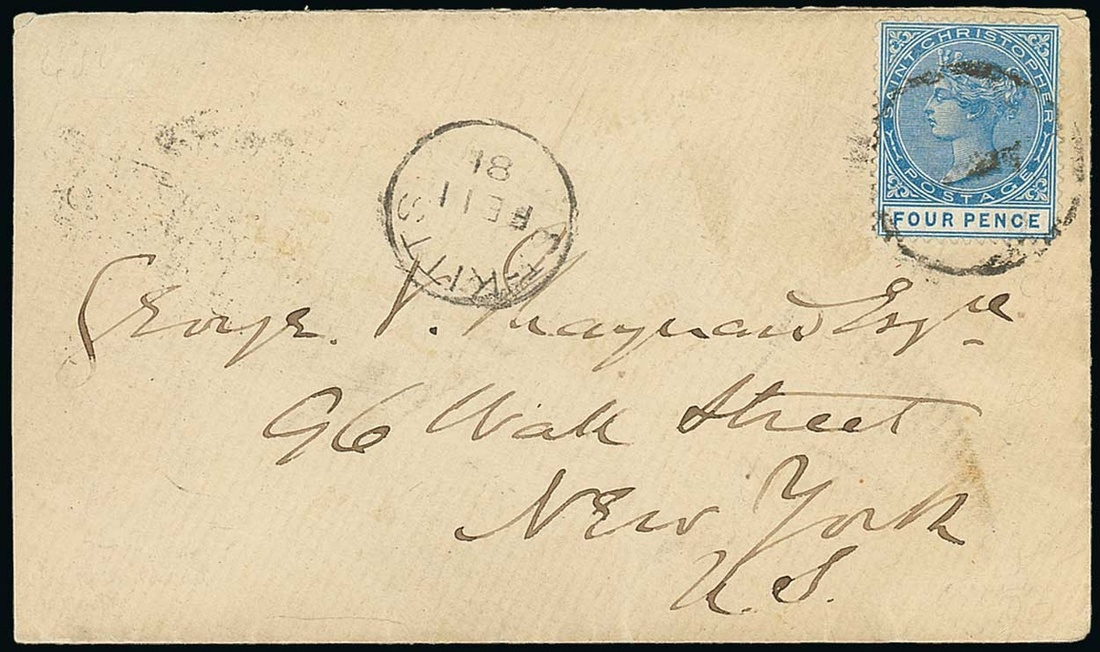 SAINT CHRISTOPHER
POSTAGE
FOUR PENCE
ST. KITTS
FE 11
81
George V. Maynard Esqre
96 Wall Street
New York
U.S.